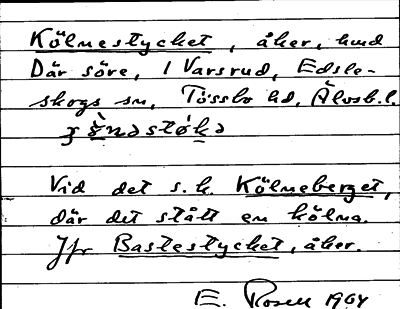 Kölnestycket, åker, hmd
Där söre, 1 Varsrud, Edsle-
skogs sn, Tössbo hd, Älvsb. l.

Vid det s. k. Kölneberget,
där det stått en kölna.
Jfr Bastestycket, åker.
E. Rosell 1904